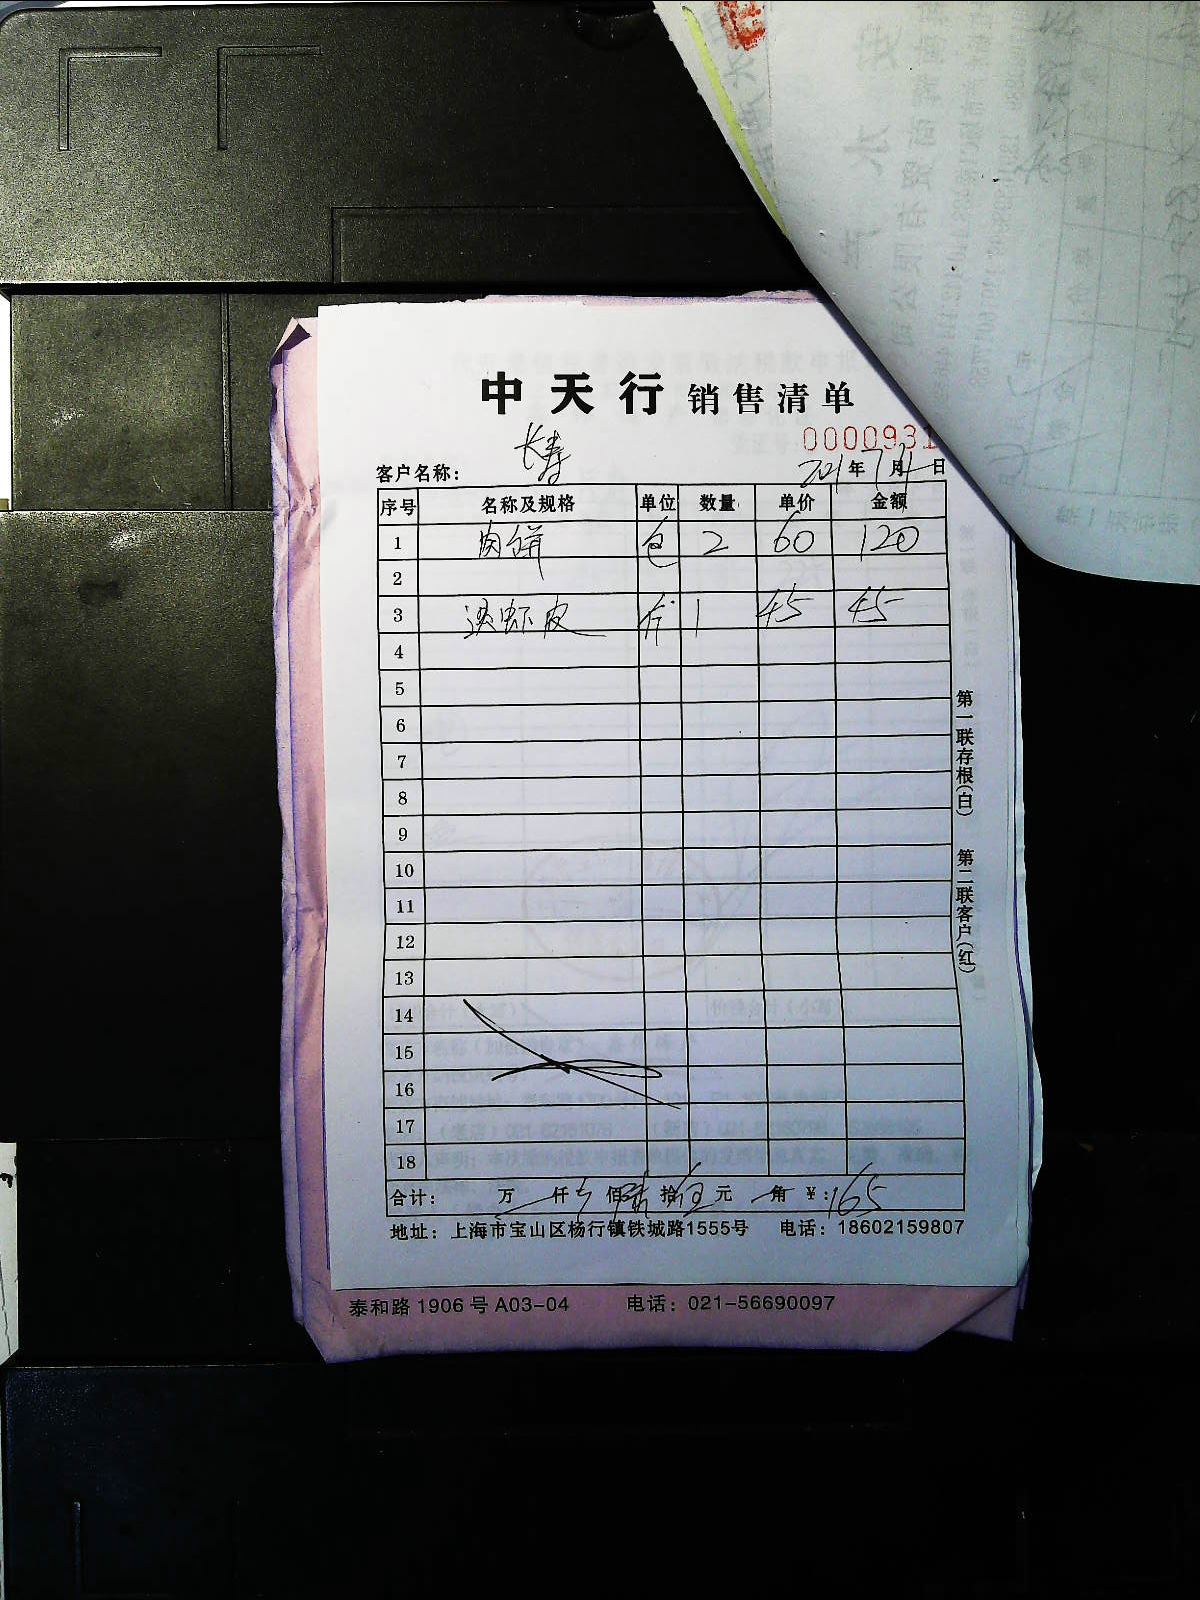 中天行 销售清单
0000931
长寿
客户名称:
2021年7月 日
序号 名称及规格 单位 数量 单价 金额
1 肉饼 包 2 60 120
2
3 淡虾皮 斤 1 45 45
4
5
6
7
8
9
10
11
12
13
14
15
16
17
18
合计: 万 仟 佰陆拾伍元 角 ¥:165
地址:上海市宝山区杨行镇铁城路1555号 电话:18602159807
泰和路 1906 号 A03-04 电话:021-56690097
第一联存根(白) 第二联客户(红)